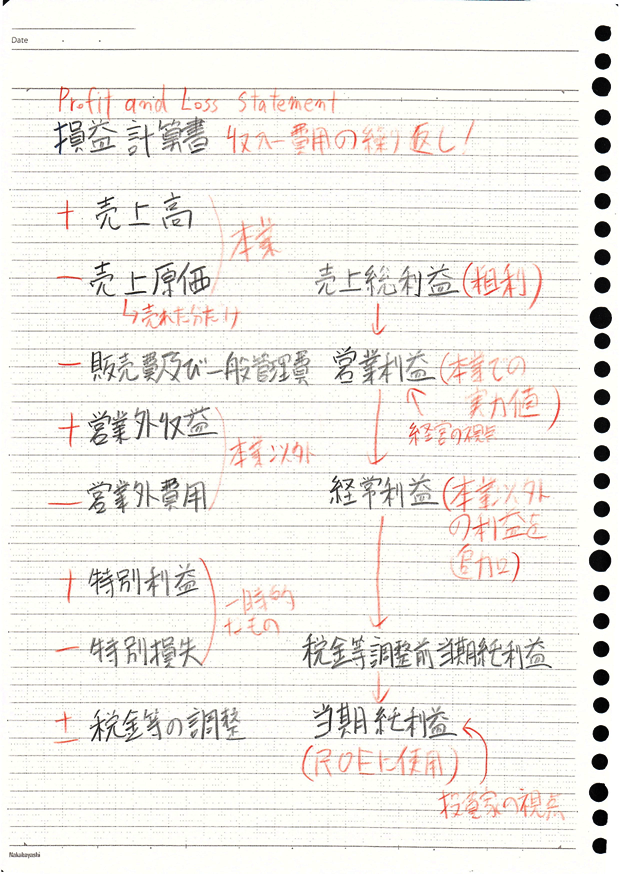 Date
Profit and Loss Statement
損益計算書 収入ー費用の繰り返し!
+ 売上高
本業
− 売上原価 売上総利益(粗利)
↳売れた分だけ ↓
− 販売費及び一般管理費 営業利益(本業での
実力値)
+ 営業外収益 経営の視点
本業以外
− 営業外費用 経常利益(本業以外
の利益を
追加)
+ 特別利益
一時的
なもの
− 特別損失 税金等調整前当期純利益
± 税金等の調整 当期純利益
(ROEに使用)
投資家の視点
Nakabayashi